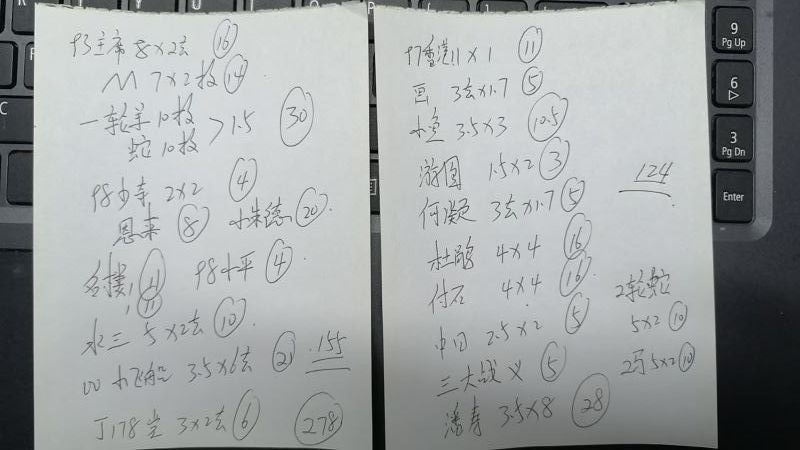 93主席 8×2玄 16
M 7×2枚 14
一轮羊10枚
蛇10枚 >1.5 30
98少寺 2×2 4
恩来 8 小朱德 20
名楼 11 98小平 4
11
水三 5×2玄 10
00 小飞船 3.5×6玄 21 155
J178 3×2玄 6 278
97香港11×1 11
画 3玄×1.7 5
小鱼 3.5×3 10.5
游园 1.5×2 3
124
何凝 3玄×1.7 5
杜鹃 4×4 16
付石 4×4 16
2轮蛇
中日 2.5×2 5
5×2 10
三大战 5
2马 5×2 10
潘寿 3.5×8 28
9
Pg Up
6
3
Pg Dn
Enter
C